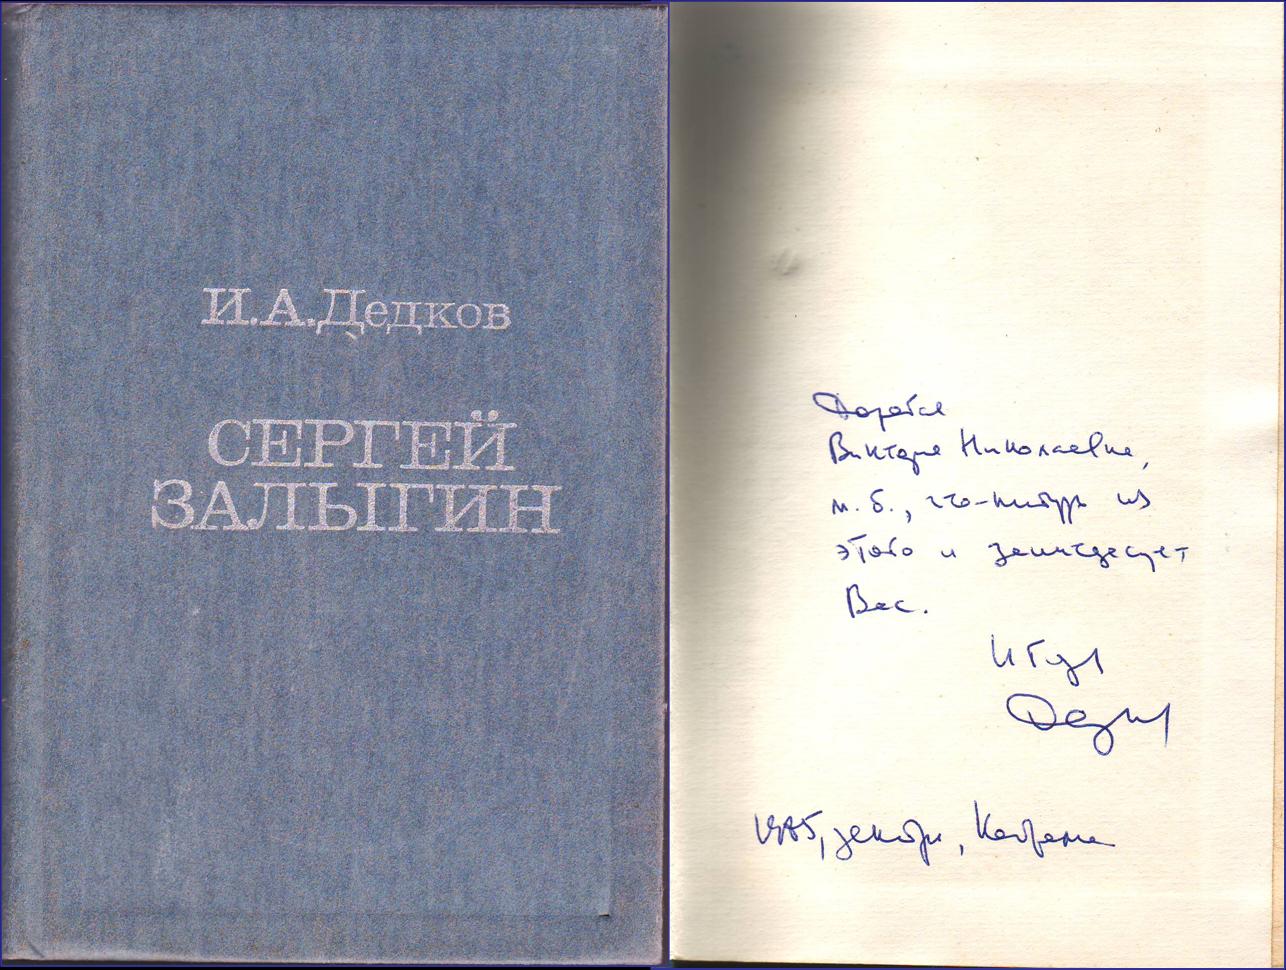 И.А.Дедков
СЕРГЕЙ
ЗАЛЫГИН
Дорогая
Виктория Николаевна,
м.б., что-нибудь из
этого и заинтересует
Вас.
Игорь
Дедков
1985, декабрь, Кострома